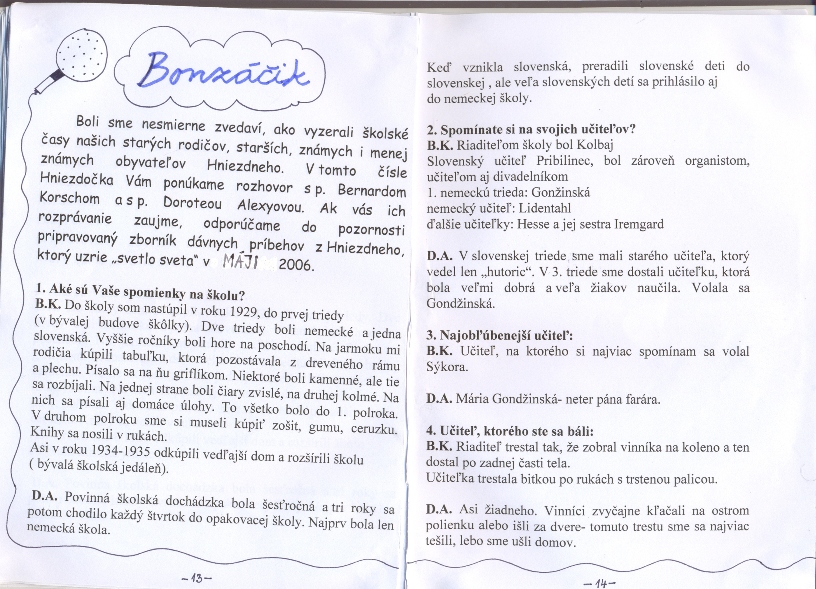 Bonzáčik
Boli sme nesmierne zvedaví, ako vyzerali školské
časy našich starých rodičov, starších, známych i menej
známych obyvateľov Hniezdneho. V tomto čísle
Hniezdočka Vám ponúkame rozhovor s p. Bernardom
Korschom a s p. Doroteou Alexyovou. Ak vás ich
rozprávanie zaujme, odporúčame do pozornosti
pripravovaný zborník dávnych príbehov z Hniezdneho,
ktorý uzrie „svetlo sveta" v MÁJI 2006.
1. Aké sú Vaše spomienky na školu?
B.K. Do školy som nastúpil v roku 1929, do prvej triedy
(v bývalej budove škôlky). Dve triedy boli nemecké a jedna
slovenská. Vyššie ročníky boli hore na poschodí. Na jarmoku mi
rodičia kúpili tabuľku, ktorá pozostávala z dreveného rámu
a plechu. Písalo sa na ňu griflíkom. Niektoré boli kamenné, ale tie
sa rozbíjali. Na jednej strane boli čiary zvislé, na druhej kolmé. Na
nich sa písali aj domáce úlohy. To všetko bolo do 1. polroka.
V druhom polroku sme si museli kúpiť zošit, gumu, ceruzku.
Knihy sa nosili v rukách.
Asi v roku 1934-1935 odkúpili vedľajší dom a rozšírili školu
( bývalá školská jedáleň).
D.A. Povinná školská dochádzka bola šesťročná a tri roky sa
potom chodilo každý štvrtok do opakovacej školy. Najprv bola len
nemecká škola.
-13-
Keď vznikla slovenská, preradili slovenské deti do
slovenskej , ale veľa slovenských detí sa prihlásilo aj
do nemeckej školy.
2. Spomínate si na svojich učiteľov?
B.K. Riaditeľom školy bol Kolbaj
Slovenský učiteľ Pribilinec, bol zároveň organistom,
učiteľom aj divadelníkom
1. nemeckú trieda: Gonžinská
nemecký učiteľ: Lidentahl
ďalšie učiteľky: Hesse a jej sestra Iremgard
D.A. V slovenskej triede sme mali starého učiteľa, ktorý
vedel len „hutoric". V 3. triede sme dostali učiteľku, ktorá
bola veľmi dobrá a veľa žiakov naučila. Volala sa
Gondžinská.
3. Najobľúbenejší učiteľ:
B.K. Učiteľ, na ktorého si najviac spomínam sa volal
Sýkora.
D.A. Mária Gondžinská- neter pána farára.
4. Učiteľ, ktorého ste sa báli:
B.K. Riaditeľ trestal tak, že zobral vinníka na koleno a ten
dostal po zadnej časti tela.
Učiteľka trestala bitkou po rukách s trstenou palicou.
D.A. Asi žiadneho. Vinníci zvyčajne kľačali na ostrom
polienku alebo išli za dvere- tomuto trestu sme sa najviac
tešili, lebo sme ušli domov.
-14-